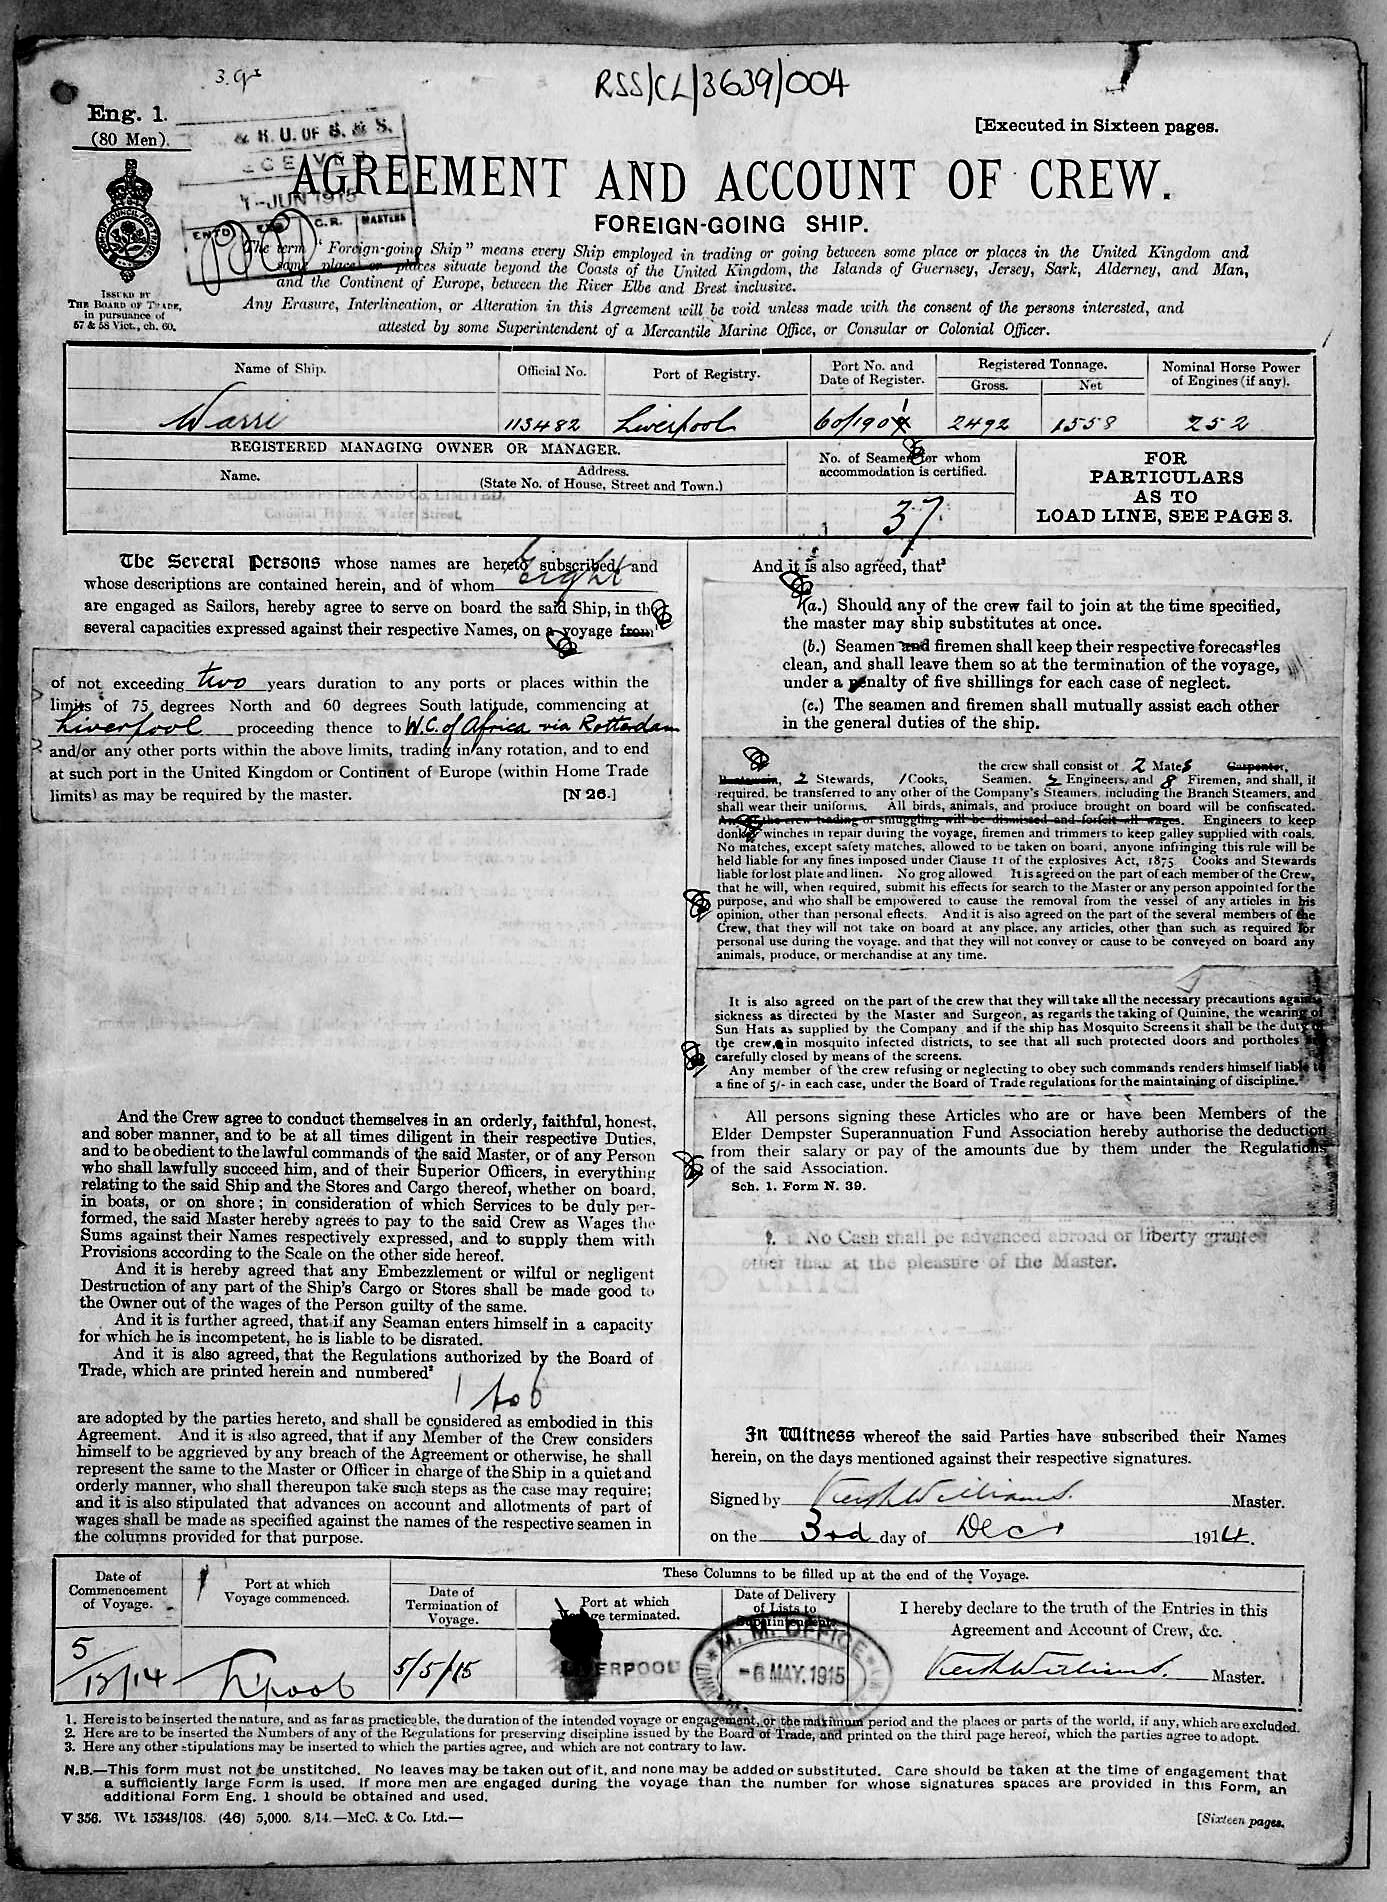 3.9
RSS/CL/3639/004
Eng. 1.
(80 Men).
& R.U. OF S. & S.
1-JUN 1915
ENTD C.R. MASTERS
[Executed in Sixteen pages.
AGREEMENT AND ACCOUNT OF CREW.
FOREIGN-GOING SHIP.
ISSUED BY
THE BOARD OF TRADE,
in pursuance of
57 & 58 Vict., ch. 60.
The term "Foreign-going Ship" means every Ship employed in trading or going between some place or places in the United Kingdom and
some place or places situate beyond the Coasts of the United Kingdom, the Islands of Guernsey, Jersey, Sark, Alderney, and Man,
and the Continent of Europe, between the River Elbe and Brest inclusive.
Any Erasure, Interlineation, or Alteration in this Agreement will be void unless made with the consent of the persons interested, and
attested by some Superintendent of a Mercantile Marine Office, or Consular or Colonial Officer.
Name of Ship. Official No. Port of Registry. Port No. and Date of Register. Registered Tonnage. Gross. Net Nominal Horse Power of Engines (if any).
Warri 113482 Liverpool 60/1901 2492 1558 252
REGISTERED MANAGING OWNER OR MANAGER.
Name. Address.
(State No. of House, Street and Town.)
ELDER DEMPSTER AND Co. LIMITED,
Colonial House, Water Street,
No. of Seamen for whom
accommodation is certified.
37
FOR
PARTICULARS
AS TO
LOAD LINE, SEE PAGE 3.
The Several Persons whose names are hereto subscribed, and
whose descriptions are contained herein, and of whom Eight
are engaged as Sailors, hereby agree to serve on board the said Ship, in the
several capacities expressed against their respective Names, on a voyage from
of not exceeding two years duration to any ports or places within the
limits of 75 degrees North and 60 degrees South latitude, commencing at
Liverpool proceeding thence to W.C. of Africa via Rotterdam
and/or any other ports within the above limits, trading in any rotation, and to end
at such port in the United Kingdom or Continent of Europe (within Home Trade
limits) as may be required by the master. [N 26.]
And the Crew agree to conduct themselves in an orderly, faithful, honest,
and sober manner, and to be at all times diligent in their respective Duties,
and to be obedient to the lawful commands of the said Master, or of any Person
who shall lawfully succeed him, and of their Superior Officers, in everything
relating to the said Ship and the Stores and Cargo thereof, whether on board,
in boats, or on shore; in consideration of which Services to be duly per-
formed, the said Master hereby agrees to pay to the said Crew as Wages the
Sums against their Names respectively expressed, and to supply them with
Provisions according to the Scale on the other side hereof.
And it is hereby agreed that any Embezzlement or wilful or negligent
Destruction of any part of the Ship's Cargo or Stores shall be made good to
the Owner out of the wages of the Person guilty of the same.
And it is further agreed, that if any Seaman enters himself in a capacity
for which he is incompetent, he is liable to be disrated.
And it is also agreed, that the Regulations authorized by the Board of
Trade, which are printed herein and numbered²
1 to 6
are adopted by the parties hereto, and shall be considered as embodied in this
Agreement. And it is also agreed, that if any Member of the Crew considers
himself to be aggrieved by any breach of the Agreement or otherwise, he shall
represent the same to the Master or Officer in charge of the Ship in a quiet and
orderly manner, who shall thereupon take such steps as the case may require;
and it is also stipulated that advances on account and allotments of part of
wages shall be made as specified against the names of the respective seamen in
the columns provided for that purpose.
And it is also agreed, that³
(a.) Should any of the crew fail to join at the time specified,
the master may ship substitutes at once.
(b.) Seamen and firemen shall keep their respective forecastles
clean, and shall leave them so at the termination of the voyage,
under a penalty of five shillings for each case of neglect.
(c.) The seamen and firemen shall mutually assist each other
in the general duties of the ship.
the crew shall consist of 2 Mates Carpenter,
Boatswain, 2 Stewards, 1 Cooks, Seamen. 2 Engineers, and 8 Firemen, and shall, if
required, be transferred to any other of the Company's Steamers, including the Branch Steamers, and
shall wear their uniforms. All birds, animals, and produce brought on board will be confiscated.
Any of the crew trading or smuggling will be dismissed and forfeit all wages. Engineers to keep
donkey winches in repair during the voyage, firemen and trimmers to keep galley supplied with coals.
No matches, except safety matches, allowed to be taken on board, anyone infringing this rule will be
held liable for any fines imposed under Clause 11 of the explosives Act, 1875. Cooks and Stewards
liable for lost plate and linen. No grog allowed It is agreed on the part of each member of the Crew,
that he will, when required, submit his effects for search to the Master or any person appointed for the
purpose, and who shall be empowered to cause the removal from the vessel of any articles in his
opinion, other than personal effects. And it is also agreed on the part of the several members of the
Crew, that they will not take on board at any place, any articles, other than such as required for
personal use during the voyage, and that they will not convey or cause to be conveyed on board any
animals, produce, or merchandise at any time.
It is also agreed on the part of the crew that they will take all the necessary precautions against
sickness as directed by the Master and Surgeon, as regards the taking of Quinine, the wearing of
Sun Hats as supplied by the Company and if the ship has Mosquito Screens it shall be the duty of
the crew, in mosquito infected districts, to see that all such protected doors and portholes are
carefully closed by means of the screens.
Any member of the crew refusing or neglecting to obey such commands renders himself liable to
a fine of 5/- in each case, under the Board of Trade regulations for the maintaining of discipline."
All persons signing these Articles who are or have been Members of the
Elder Dempster Superannuation Fund Association hereby authorise the deduction
from their salary or pay of the amounts due by them under the Regulations
of the said Association.
Sch. 1. Form N. 39.
No Cash shall be advanced abroad or liberty granted
other than at the pleasure of the Master.
In Witness whereof the said Parties have subscribed their Names
herein, on the days mentioned against their respective signatures.
Signed by Williams. Master.
on the 3rd day of Dec 1914.
Date of Commencement of Voyage. Port at which Voyage commenced. These Columns to be filled up at the end of the Voyage.
Date of Termination of Voyage. Port at which Voyage terminated. Date of Delivery of Lists to Superintendent.
I hereby declare to the truth of the Entries in this
Agreement and Account of Crew, &c.
5/12/14 L'pool 5/5/15 LIVERPOOL M. M. OFFICE -6 MAY.1915 Williams. Master.
1. Here is to be inserted the nature, and as far as practicable, the duration of the intended voyage or engagement, or the maximum period and the places or parts of the world, if any, which are excluded.
2. Here are to be inserted the Numbers of any of the Regulations for preserving discipline issued by the Board of Trade, and printed on the third page hereof, which the parties agree to adopt.
3. Here any other stipulations may be inserted to which the parties agree, and which are not contrary to law.
N.B.—This form must not be unstitched. No leaves may be taken out of it, and none may be added or substituted. Care should be taken at the time of engagement that
a sufficiently large Form is used. If more men are engaged during the voyage than the number for whose signatures spaces are provided in this Form, an
additional Form Eng. 1 should be obtained and used.
V 356. Wt. 15348/108. (46) 5,000. 8/14.—McC. & Co. Ltd.—
[Sixteen pages.